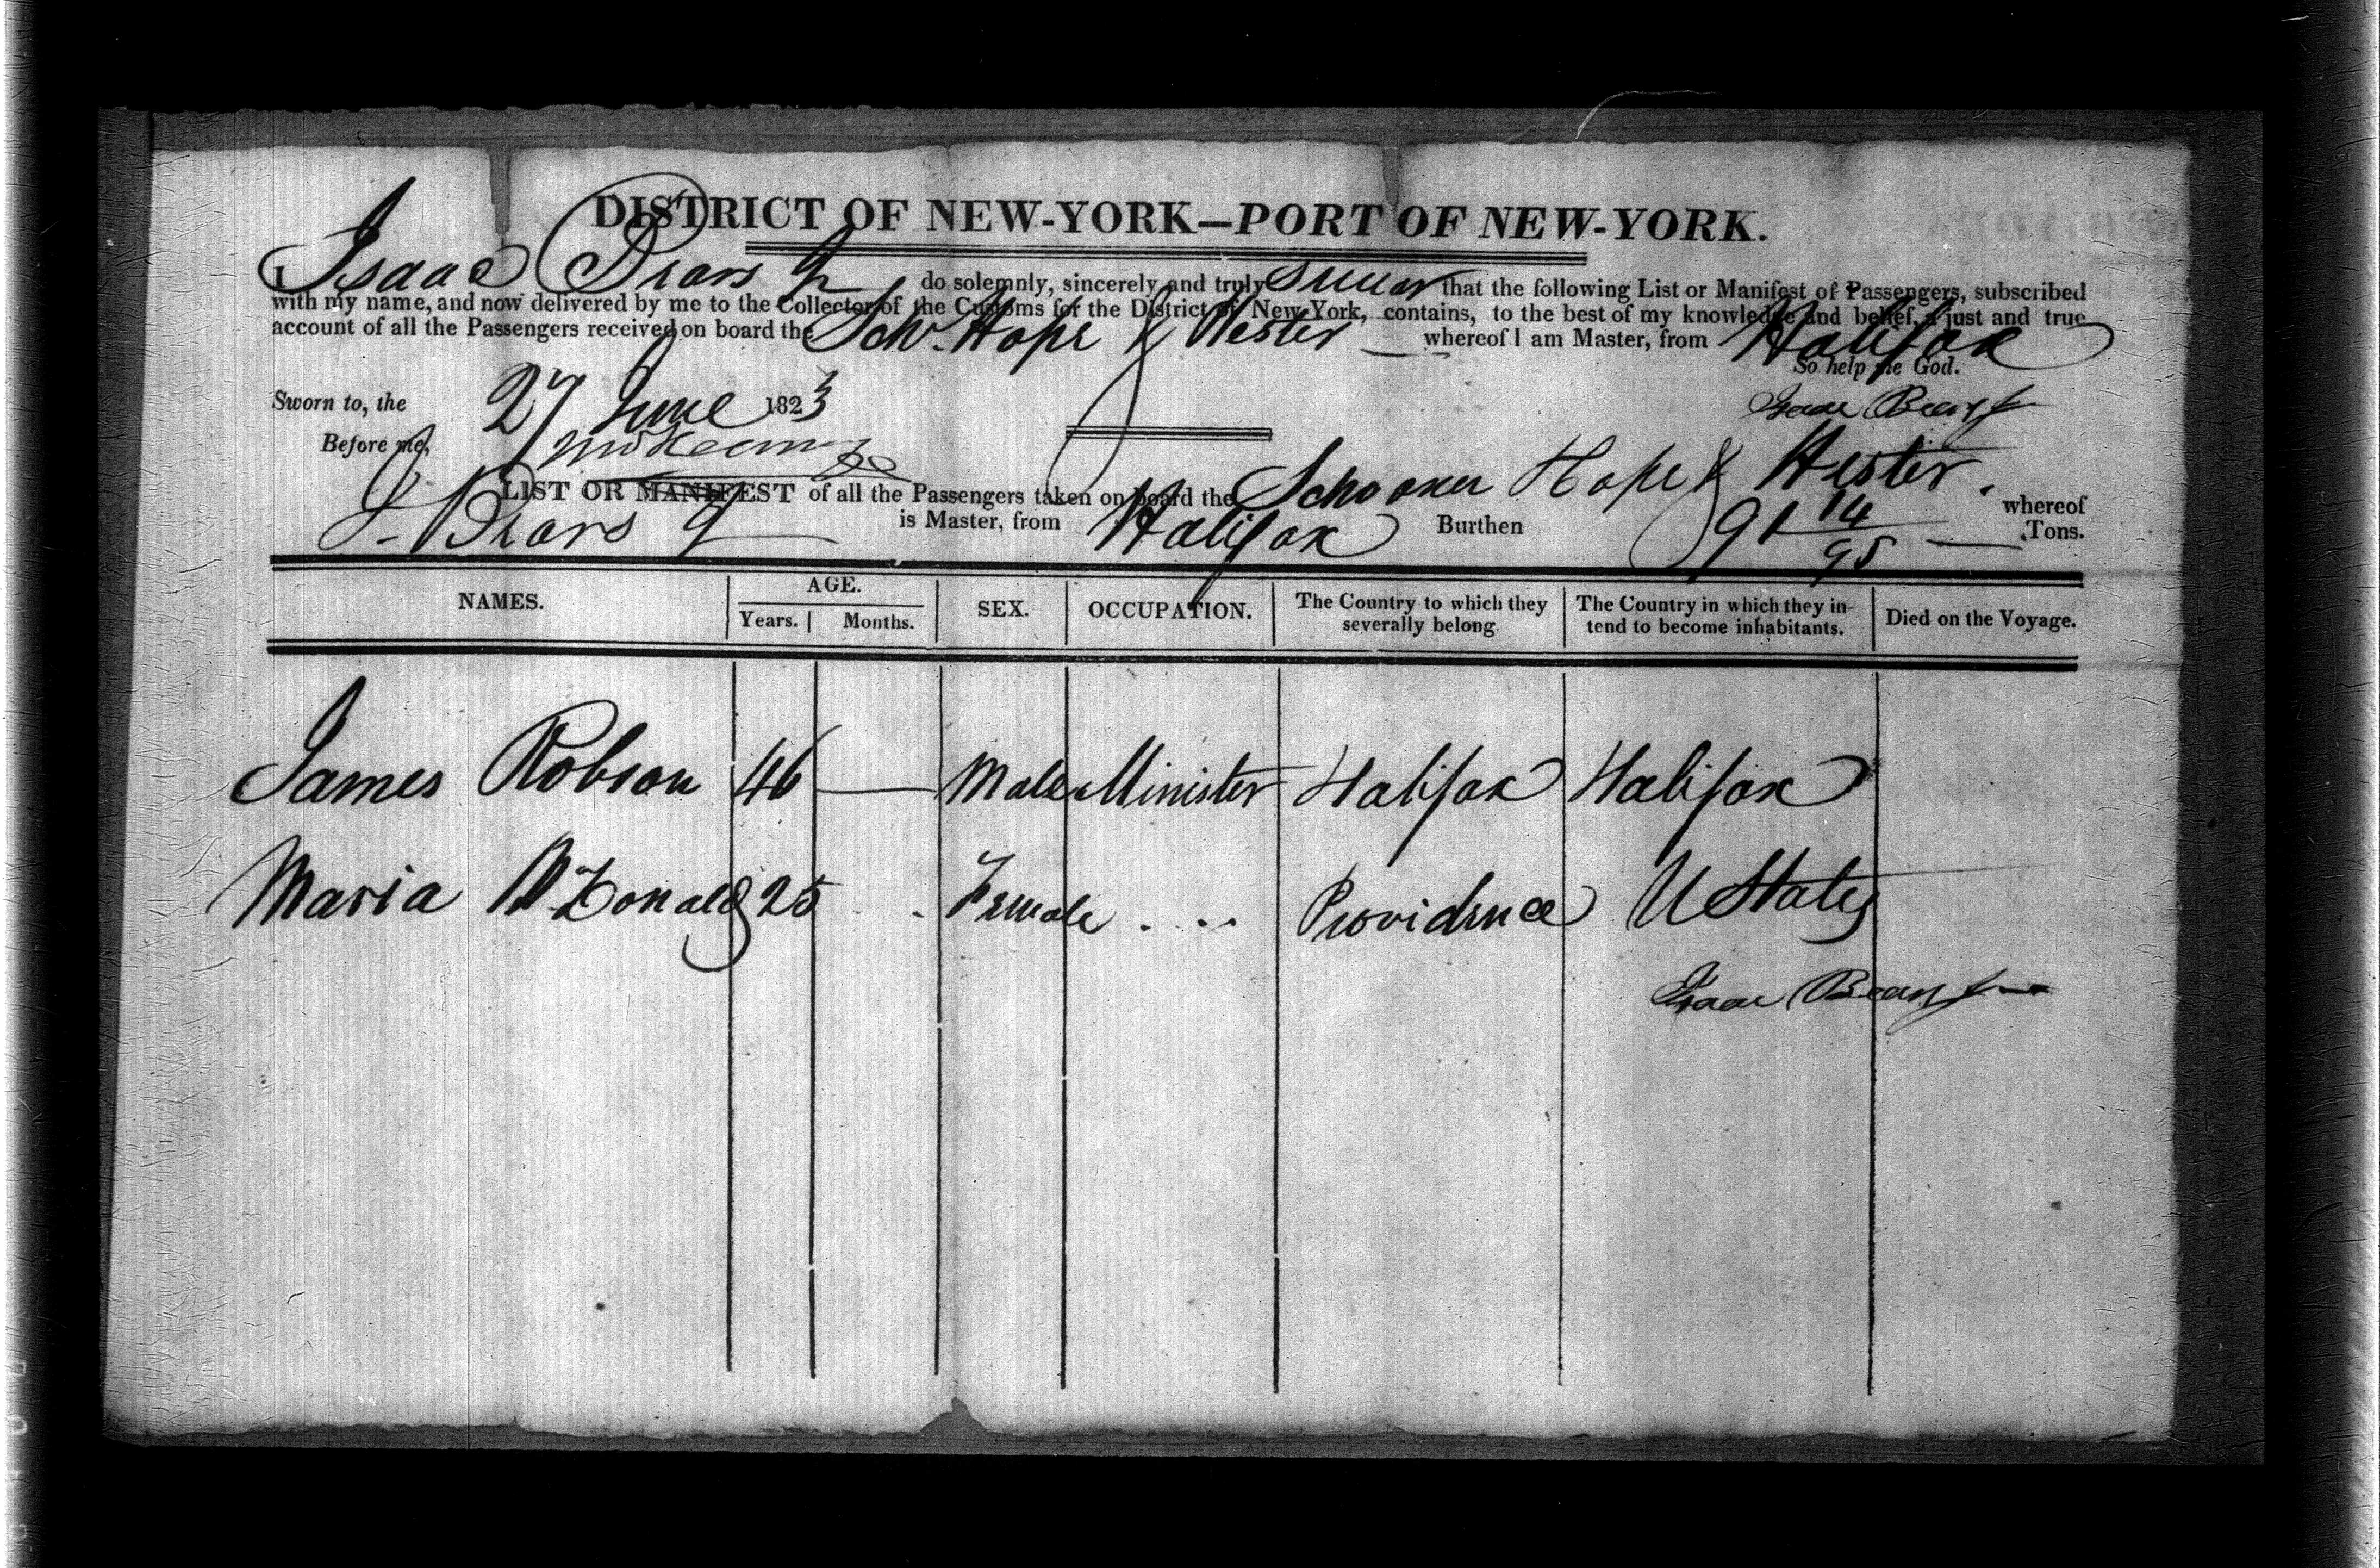 DISTRICT OF NEW-YORK—PORT OF NEW-YORK.
I Isaac Bears Jr do solemnly, sincerely and truly swear that the following List or Manifest of Passengers, subscribed
with my name, and now delivered by me to the Collector of the Customs for the District of New York, contains, to the best of my knowledge and belief, a just and true
account of all the Passengers received on board the Schr. Hope & Hester whereof I am Master, from Halifax
So help me God.
Sworn to, the 27 June 1823
Isaac Bears Jr
Before me,
LIST OR MANIFEST of all the Passengers taken on board the Schooner Hope & Hester. whereof
I. Bears Jr is Master, from Halifax Burthen 91 14/95 Tons.
NAMES. AGE. Years. Months. SEX. OCCUPATION. The Country to which they severally belong. The Country in which they intend to become inhabitants. Died on the Voyage.
James Robson 46 — Male Minister Halifax Halifax
Maria McDonald 25 . . Female . . . Providence U States
Isaac Bears Jr